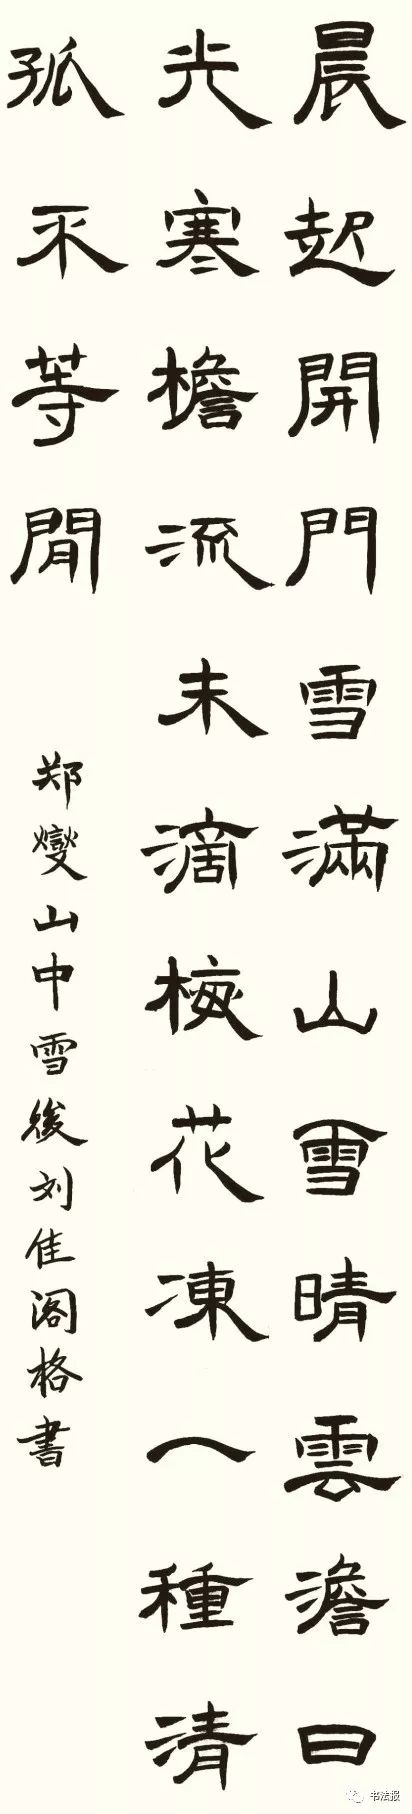 晨起開門雪滿山雪晴雲澹日
光寒檐流未滴梅花凍一種清
孤不等閒
郑燮山中雪後刘佳阁格書
书法报